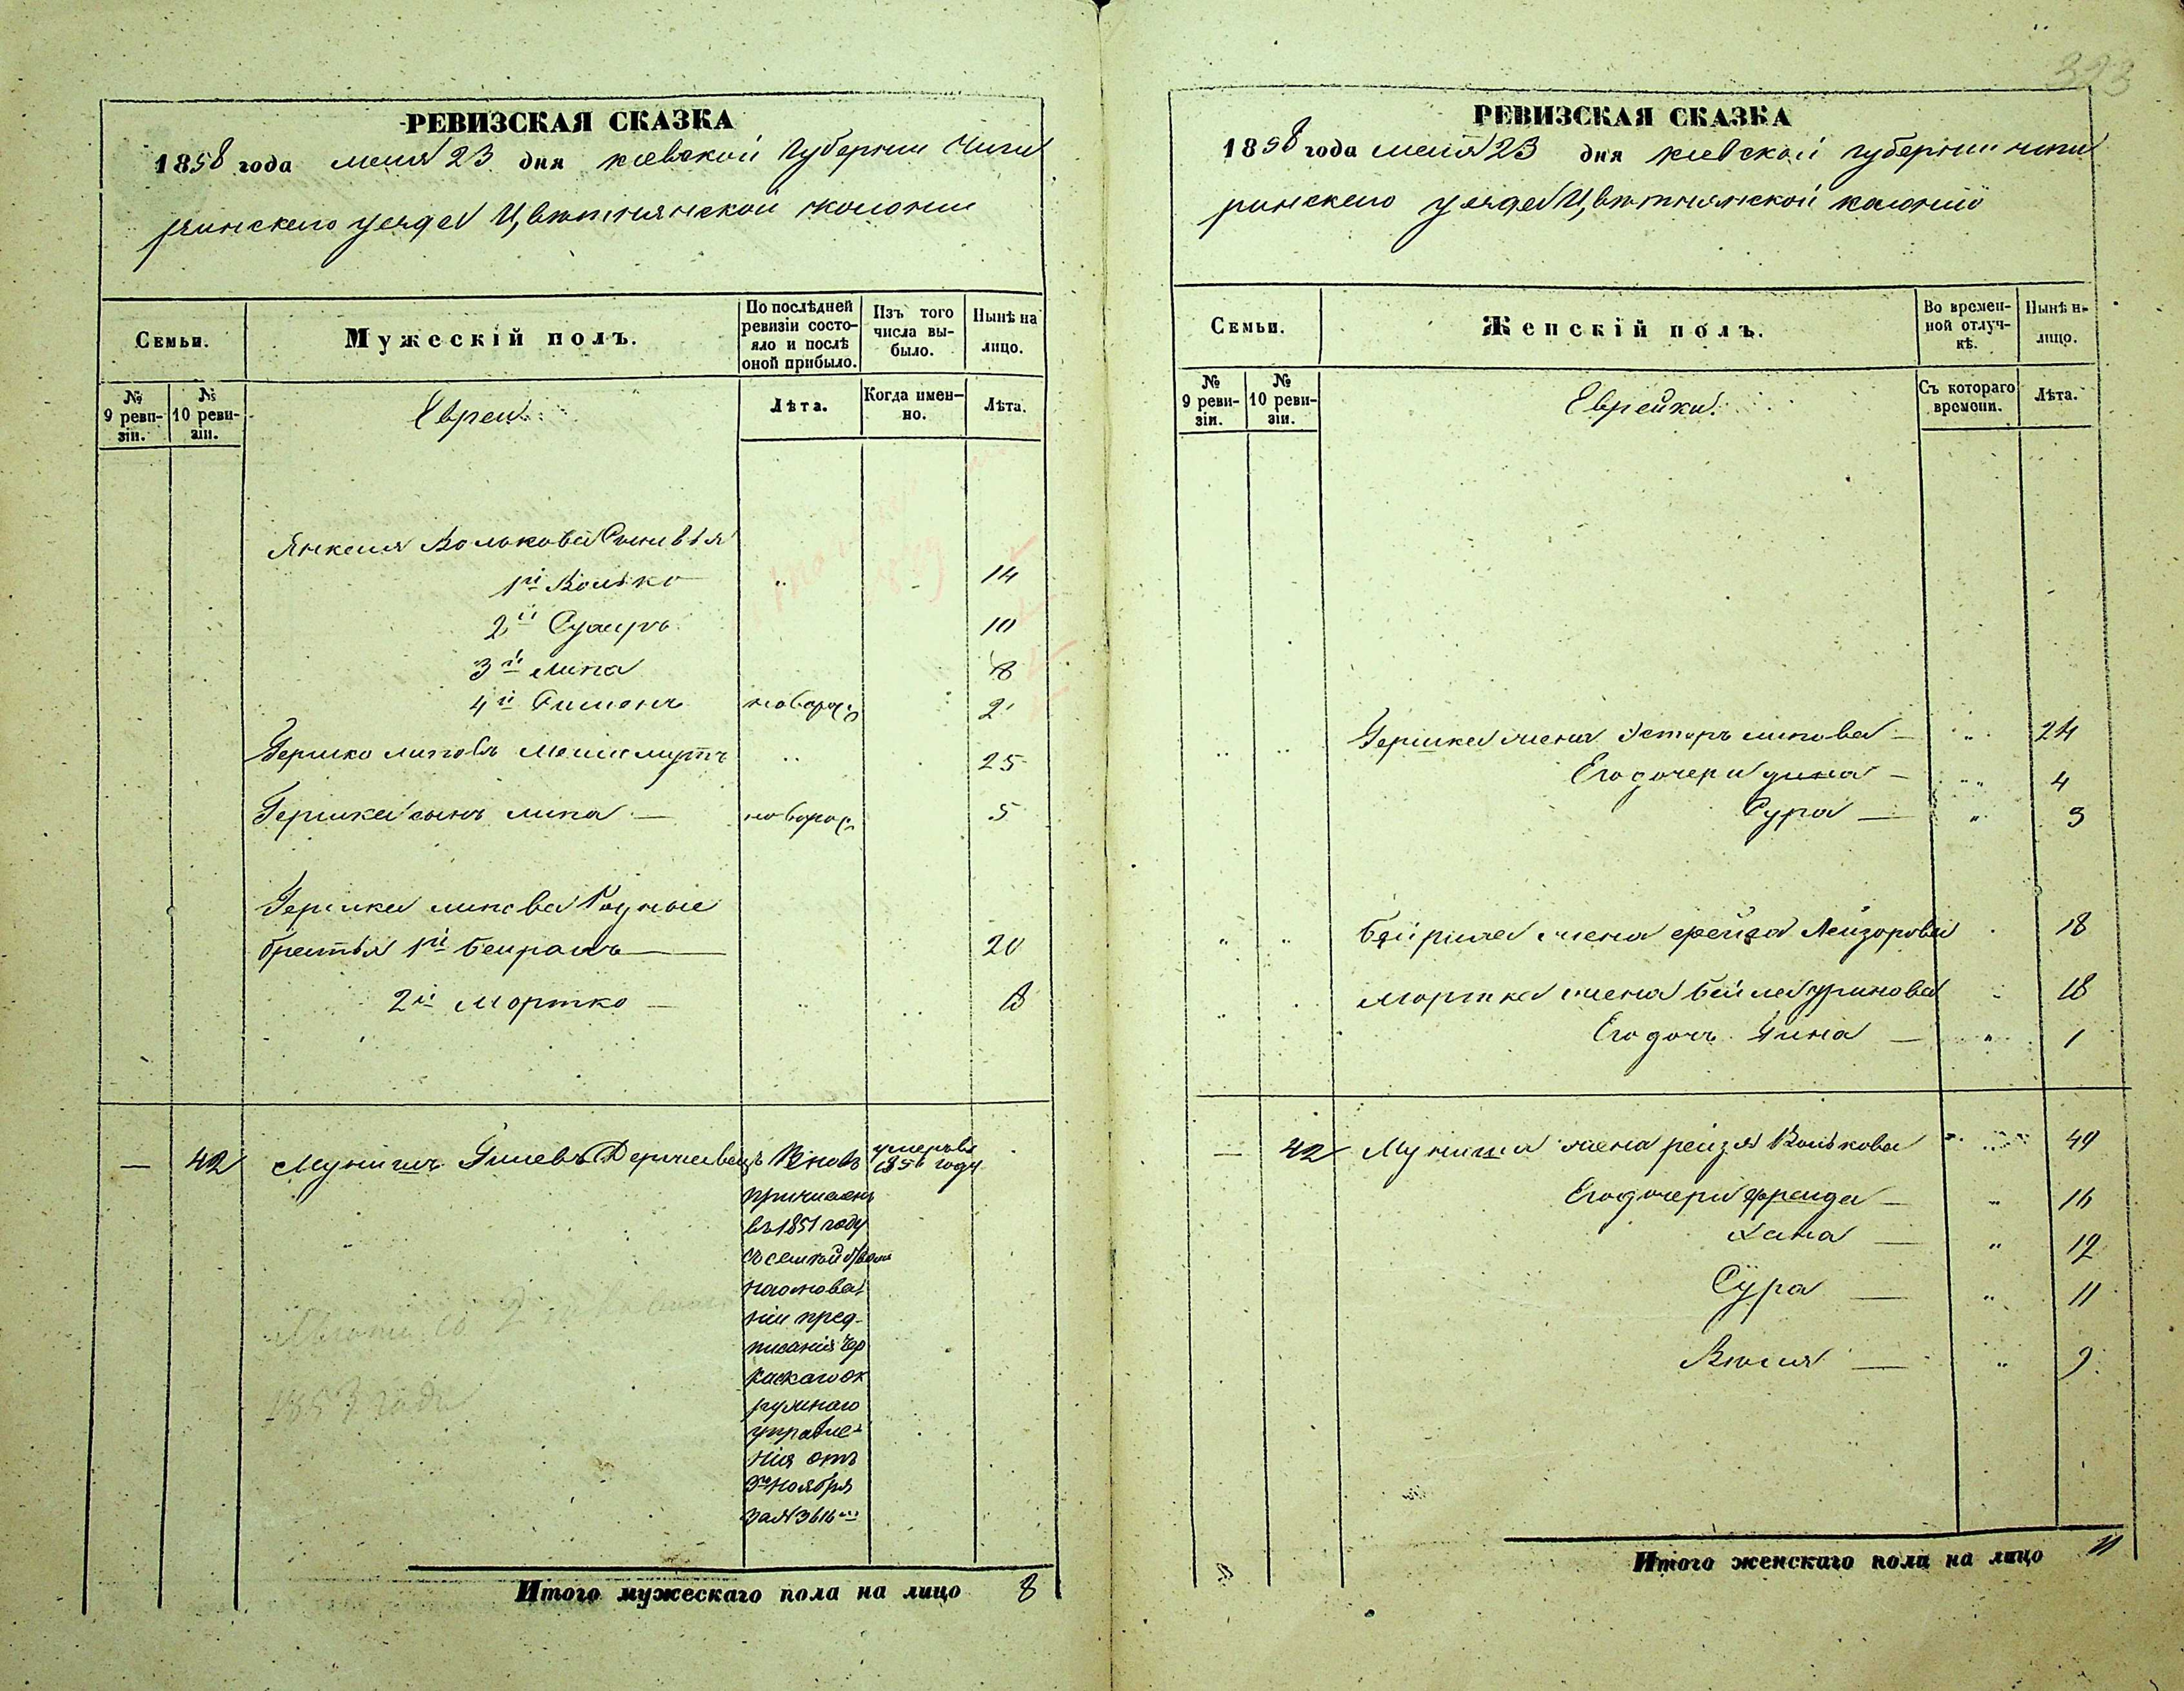 РЕВИЗСКАЯ СКАЗКА
1858 года мая 23 дня киевской губернии Чиги
ринского уезда Цвѣтнянской колонии
Семьи.
Мужескій полъ.
По послѣдней ревизіи состояло и послѣ оной прибыло.
Изъ того числа выбыло.
Нынѣ на лицо.
№ 9 ревизіи.
№ 10 ревизіи.
Евреи.
Лѣта.
Когда именно.
Лѣта.
Янкеля Волькова Сыновья
1й Волько 14
2й 10
3й Липа 8
4й Симонъ новорож 2
Гершко Липовъ 25
Гершка сынъ Липа — новорож 5
Гершка Липова Родные
братья 1й Беирашъ — 20
2й Мортко — 18
— 42 Мунишъ вновь умеръ въ 1856 году
причисленъ
въ 1851 году
съ семьей
на основа
нии пред-
писания Чер
каскаго ок
ружнаго
управле-
ния отъ
ноября
за № 3616
1853 года
Итого мужескаго пола на лицо 8
323
РЕВИЗСКАЯ СКАЗКА
1858 года мая 23 дня киевской губернии чиги
ринского уезда Цвѣтнянской колонии
Семьи.
Женскій полъ.
Во временной отлучкѣ.
Нынѣ на лицо.
№ 9 ревизіи.
№ 10 ревизіи.
Еврейки.
Съ котораго времени.
Лѣта.
Гершка жена Эстеръ Липова — 24
Его дочери Дина — 4
Сура — 3
Бейриша жена Фейга Лейзорова 18
Мортка жена Бейла 18
Его дочь Дина — 1
— 42 Муниша жена Рейзя Волькова 49
Его дочери Фрейда — 16
Хана — 12
Сура — 11
9
Итого женскаго пола на лицо 11